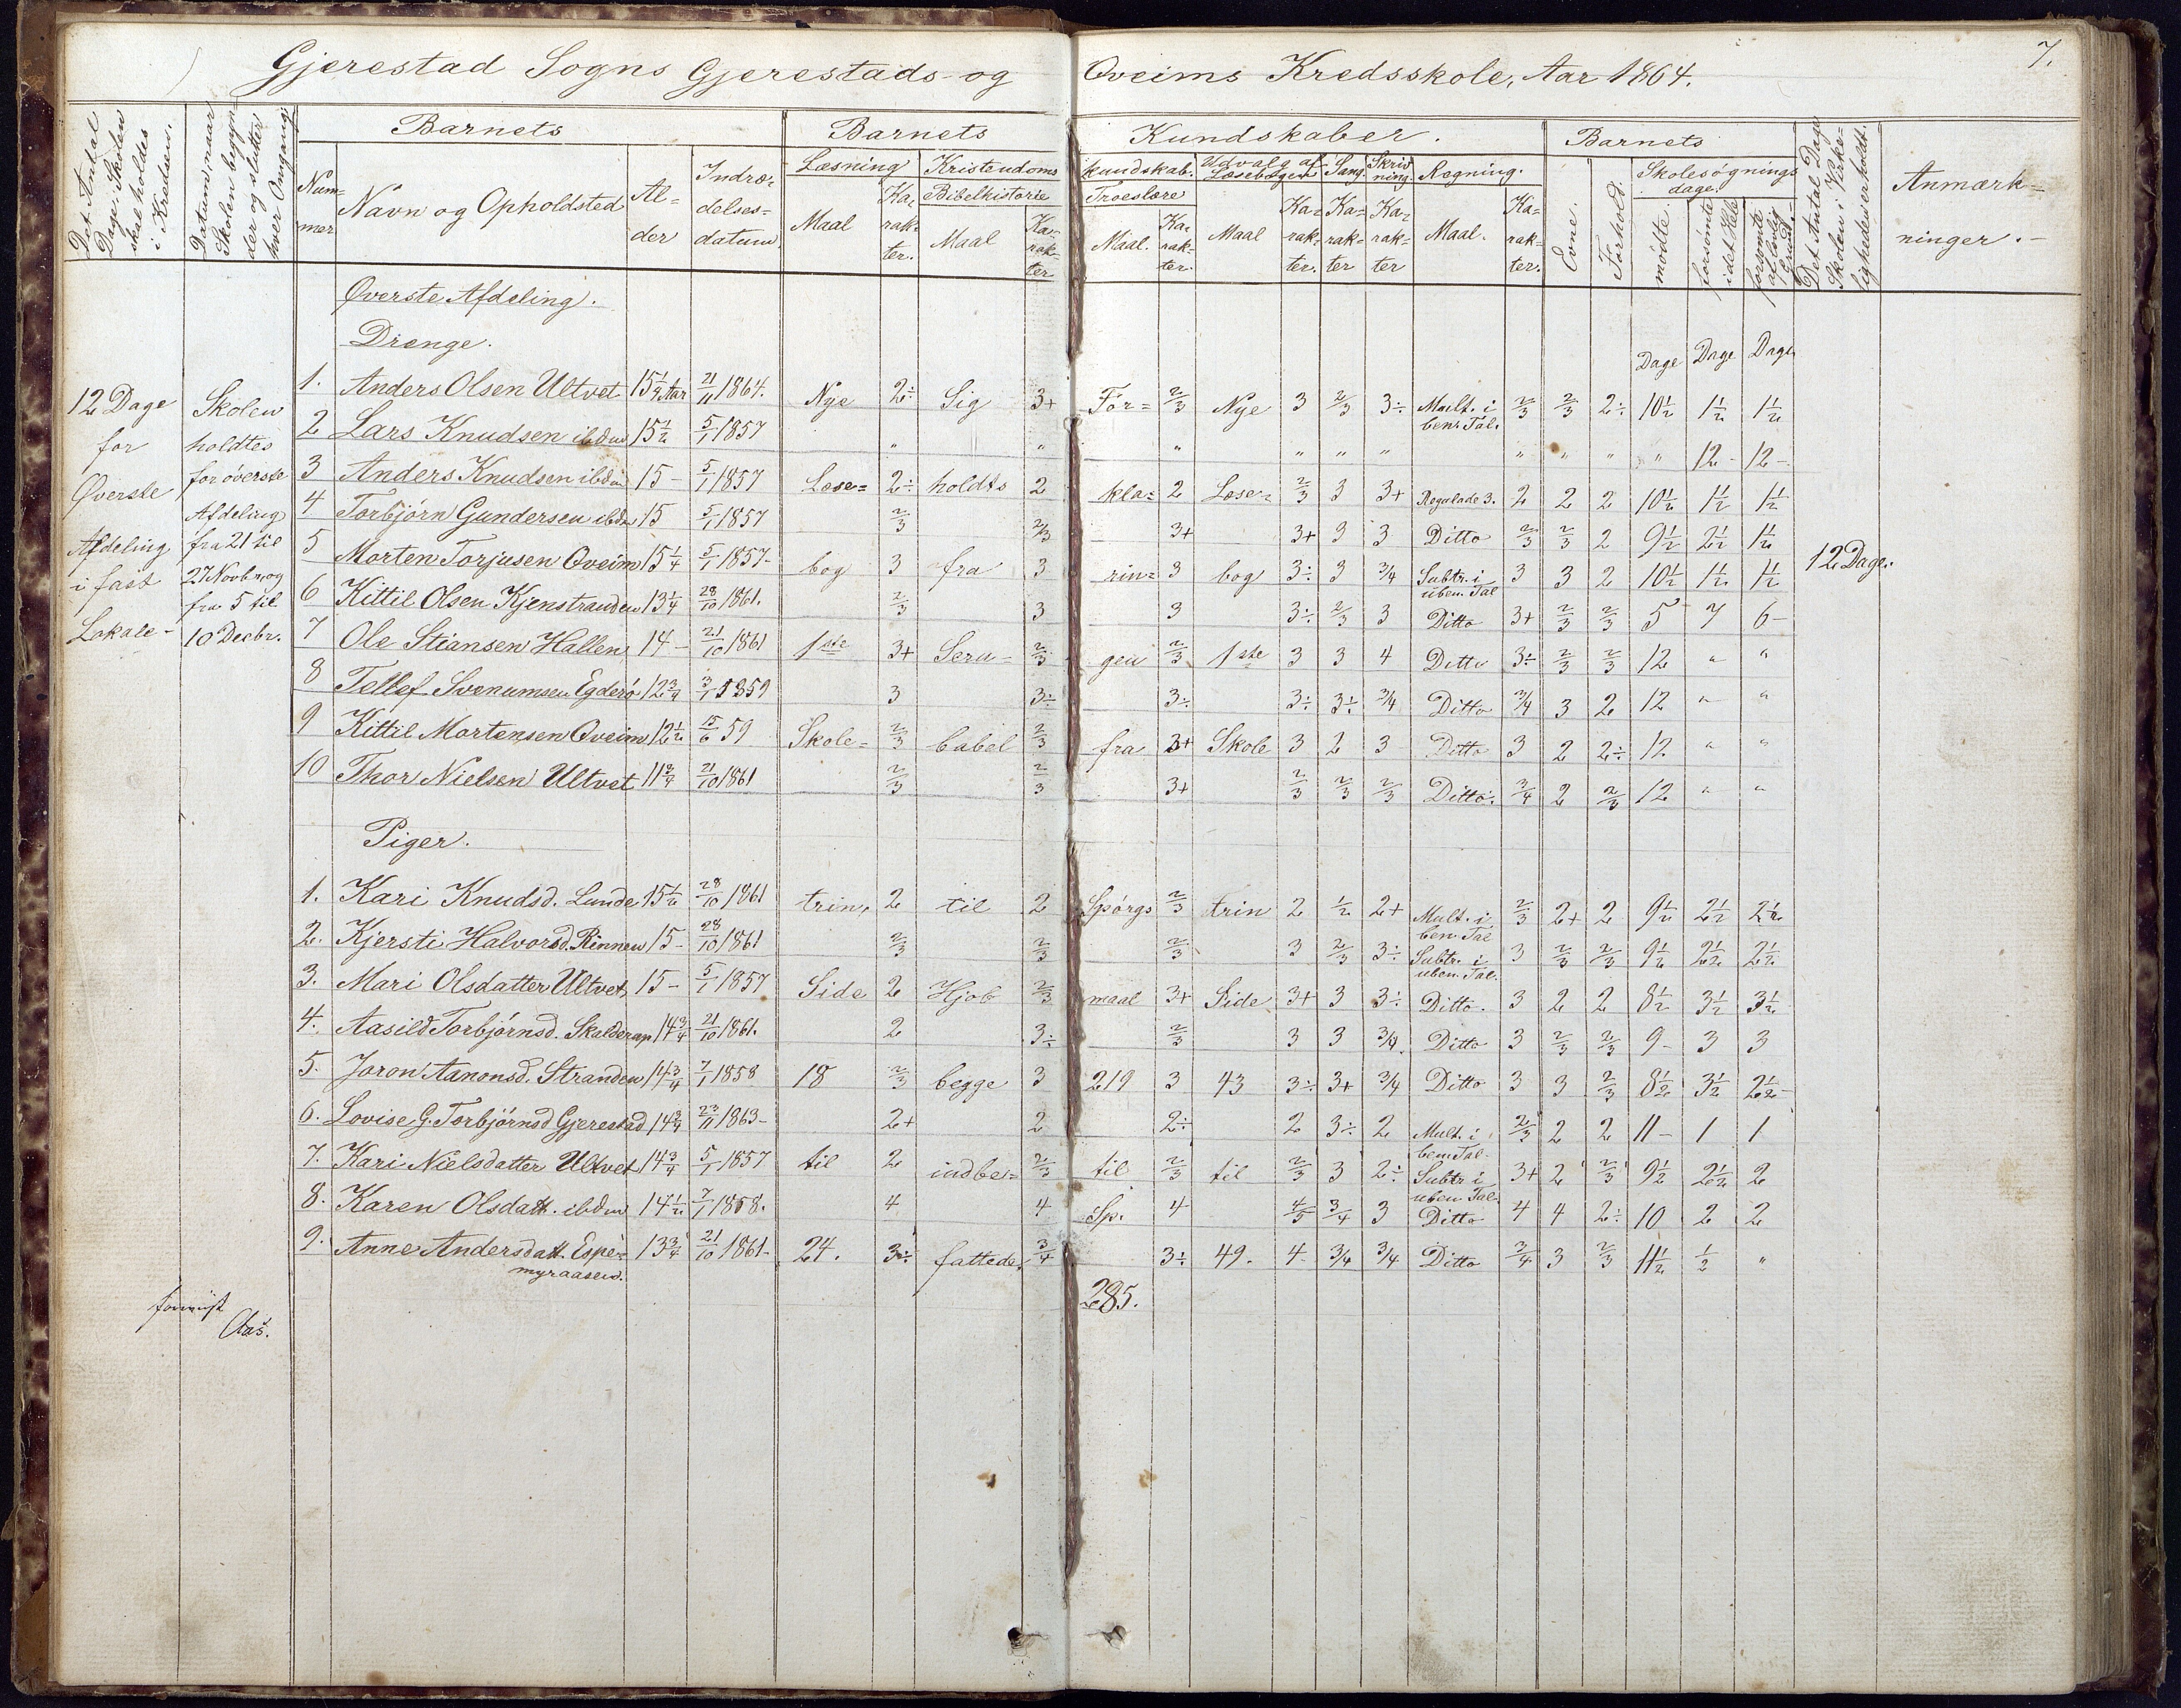 Gjerestad Sogns Gjerestads og Qveims Kredsskole, Aar 1864.
7.
Det Antal Dage Skolen skal holdes i Kredsen.
Datum, naar Skolen begyn- der og slutter hver Omgang.
Barnets
Num- mer
Navn og Opholdsted
Al- der
Indtræ- delses- datum
Barnets Kundskaber.
Læsning
Maal
Ka- rak- ter.
Kristendoms kundskab.
Bibelhistorie
Maal
Ka- rak- ter
Troeslære
Maal.
Ka- rak- ter.
Udvalg af Læsebogen
Maal
Ka- rak- ter.
Sang.
Ka- rak- ter
Skriv- ning.
Ka- rak- ter
Regning.
Maal.
Ka- rak- ter.
Barnets
Evne.
Forhold.
Skolesøgnings dage.
mødte.
forsømte i det Hele
forsømte af lovlig Grund.
Det Antal Dage Skolen i Virke- ligheden er holdt.
Anmærk- ninger.
Øverste Afdeling.
Drenge.
Dage Dage Dage
12 Dage for Øverste Afdeling i fast Lokale
Skolen holdtes for øverste Afdeling fra 21 til 27 Novbr. og fra 5 til 10 Decbr.
12 Dage.
1. Anders Olsen Ultvet 15 1/4 Aar 21/11 1864. Nye 2÷ Sig 3+ For= 2/3 Nye 3 2/3 3÷ Mult. i ben. Tal. 2/3 2/3 2÷ 10 1/2 1 1/2 1 1/2
2 Lars Knudsen ibdm 15 1/2 5/1 1857 " " " " " " " " " " 12 - 12 -
3 Anders Knudsen ibdm 15 - 5/1 1857 Læse= 2÷ holdts 2 kla= 2 Læse= 2/3 3 3+ Regulade 3. 2 2 2 10 1/2 1 1/2 1 1/2
4 Torbjørn Gundersen ibdm 15 5/1 1857 2/3 2/3 3+ 3+ 3 3 Ditto 2/3 2/3 2 9 1/2 2 1/2 1 1/2
5 Morten Torjusen Qveim 15 1/4 5/1 1857- bog 3 fra 3 rin= 3 bog 3÷ 3 3/4 Subtr. i uben. Tal 3 3 2 10 1/2 1 1/2 1 1/2
6 Kittil Olsen Kjenstranden 13 1/4 28/10 1861. 2/3 3 3 3÷ 2/3 3 Ditto 3+ 2/3 2/3 5 7 6-
7 Ole Stiansen Hallen 14 - 21/10 1861 1ste 3+ Seru- 2/3 gen 2/3 1ste 3 3 4 Ditto 3÷ 2/3 2/3 12 " "
8 Tellef Svenumsen Egderø 12 3/4 3/1 1859 3 3÷ 3÷ 3÷ 3÷ 3/4 Ditto 3/4 3 2 12 " "
9 Kittil Mortensen Qveim 12 1/2 15/6 59 Skole- 2/3 babel 2/3 fra 3+ Skole 3 2 3 Ditto 3 2 2÷ 12 " "
10 Thor Nielsen Ultvet 11 3/4 21/10 1861 2/3 2/3 3+ 2/3 2/3 2/3 Ditto. 3/4 2 2/3 12 " "
Piger.
1. Kari Knudsd. Lunde 15 1/2 28/10 1861 trin, 2 til 2 Spørgs 2/3 trin 2 1/2 2+ Mult. i ben. Tal 2/3 2+ 2 9 1/2 2 1/2 2 1/2
2. Kjersti Halvorsd. Rinnen 15 - 28/10 1861 2/3 2/3 2/3 3 2/3 3÷ Subtr. i uben. Tal. 3 2/3 2/3 9 1/2 2 1/2 2 1/2
3. Mari Olsdatter Ultvet, 15 - 5/1 1857 Side 2 Hjob 2/3 maal 3+ Side 3+ 3 3÷ Ditto. 3 2 2 8 1/2 3 1/2 3 1/2
4. Aasild Torbjørnsd. Skalderap 14 3/4 21/10 1861. 2 3÷ 2/3 3 3 3/4. Ditto 3 2/3 2/3 9- 3 3
5. Joron Aanonsd. Stranden 14 3/4 7/1 1858 18 2/3 begge 3 219 3 43 3÷ 3+ 3/4 Ditto 3 3 2/3 8 1/2 3 1/2 2 1/2-
6. Lovise G. Torbjørnsd Gjerestad 14 3/4 23/11 1863- 2+ 2 2÷ 2 3÷ 2 Mult. i ben. Tal. 2/3 2 2 11 - 1 1
7. Kari Nielsdatter Ultvet 14 3/4 5/1 1857 til 2 indbe= 2/3 til 2/3 til 2/3 3 2÷ Subtr i uben Tal. 3+ 2 2/3 9 1/2 2 1/2 2
8. Karen Olsdatt. ibdm 14 1/2 7/1 1858. 4 4 Sp. 4 4/5 3/4 3 Ditto 4 4 2÷ 10 2 2
9. Anne Andersdatt. Espe- myraasen. 13 3/4 21/10 1861- 24. 3÷ fattede. 3/4 285. 3÷ 49. 4- 3/4 3/4 Ditto 3/4 3 2/3 11 1/2 1/2 "
Aas.